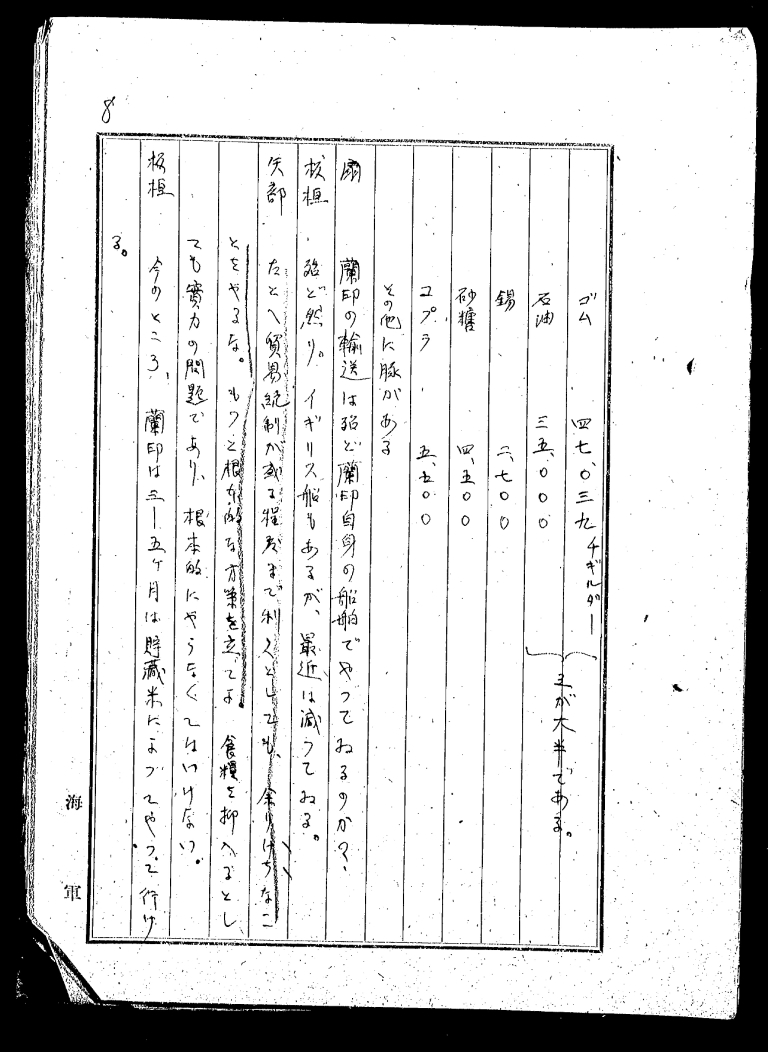 8
ゴム 四七〇、三九 千ギルダー
石油 三五、〇〇〇
錫 二、七〇〇
砂糖 四、五〇〇
コプラ 五、五〇〇
が大半である。
その他に豚がある
扇 蘭印の輸送は殆ど蘭印自身の船舶でやつてゐるのか？
板垣 殆ど然り。イギリス船もあるが、最近は減つてゐる。
矢部 たとへ貿易統制が或る程度まで利くとしても、余りけちなこ
とをやるな。もつと根本的な方策を立てよ 食糧を抑へるとし
ても實力の問題であり、根本的にやらなくてはいけない。
板垣 今のところ、蘭印は三ー五ヶ月は貯蔵米によつてやつて行け
る。
海軍